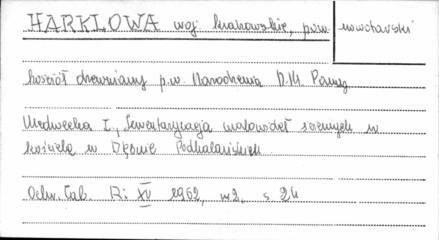 HARKLOWA woj. krakowskie, pow. nowotarski
kościół drewniany p.w. Narodzenia N.M. Panny
Medwecka I., Inwentaryzacja malowideł ściennych w
kościele w Dębnie Podhalańskim
Ochr. Zab. R. XV 1962, nr 2, s. 24